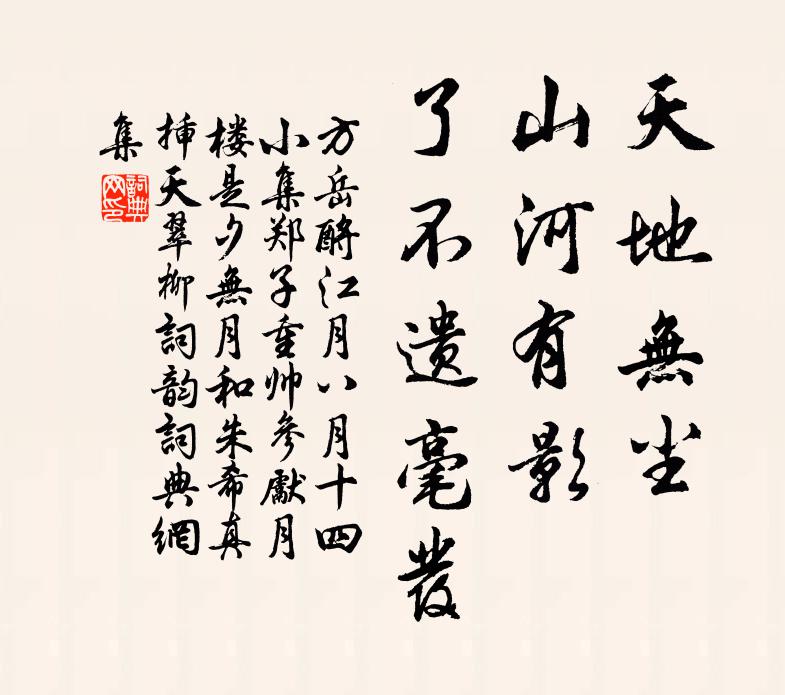 天地無尘
山河有影
了不遗毫發
方岳酹江月八月十四
小集郑子重帅参獻月
楼是夕無月和朱希真
挿天翠柳詞韵詞典網
集
詞典網印